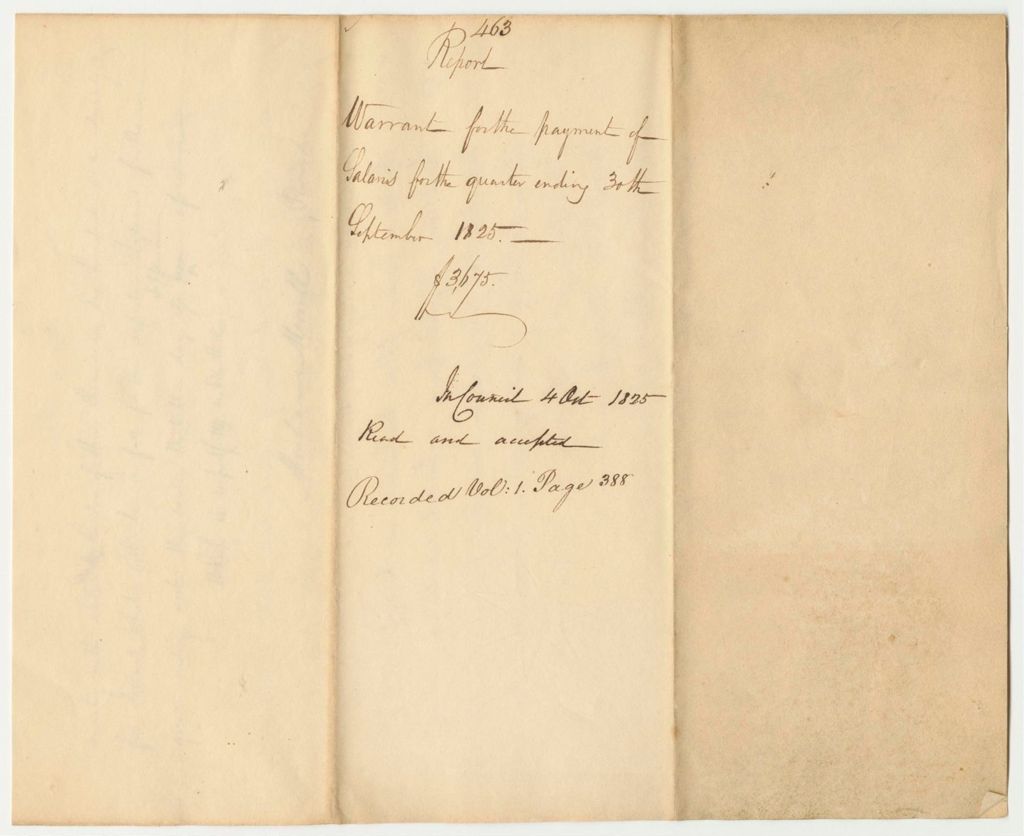 463
Report
Warrant for the payment of
Salaries for the quarter ending 30th
September 1825.
$3,675.
In Council 4 Oct 1825
Read and accepted
Recorded Vol: 1. Page 388